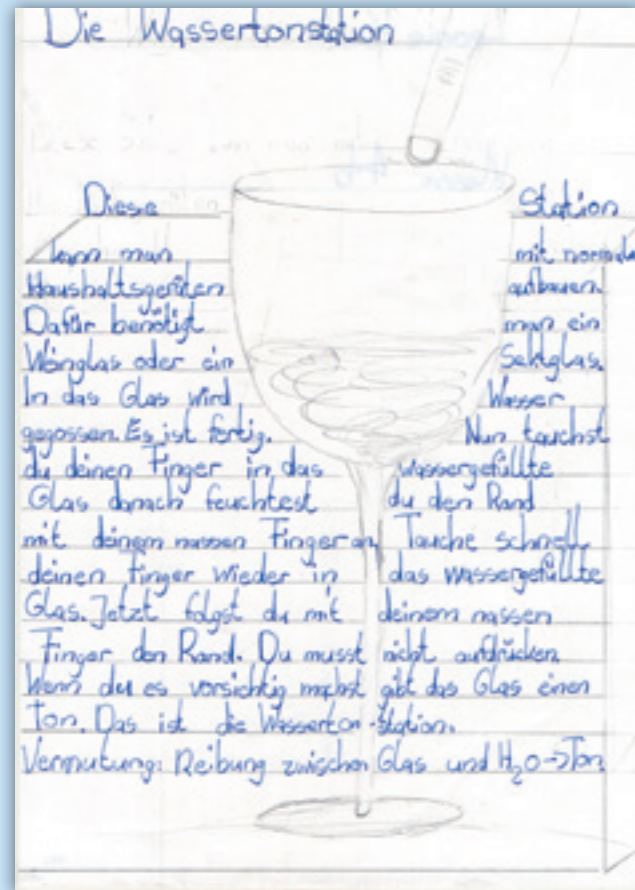 Die Wassertonstation
Diese Station
kann man mit normale
Haushaltsgeräten aufbauen.
Dafür benötigt man ein
Weinglas oder ein Sektglas.
In das Glas wird Wasser
gegossen. Es ist fertig. Nun tauchst
du deinen Finger in das wassergefüllte
Glas danach feuchtest du den Rand
mit deinem nassen Finger an, Tauche schnell
deinen Finger wieder in das wassergefüllte
Glas. Jetzt folgst du mit deinem nassen
Finger den Rand. Du musst nicht aufdrücken.
Wenn du es vorsichtig machst gibt das Glas einen
Ton. Das ist die Wasserton-station.
Vermutung: Reibung zwischen Glas und H₂O->Ton.